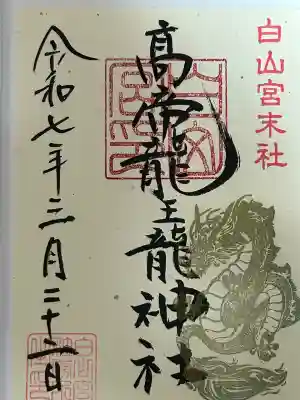 白山宮末社
高帝龍王龍神社
令和七年三月二十二日